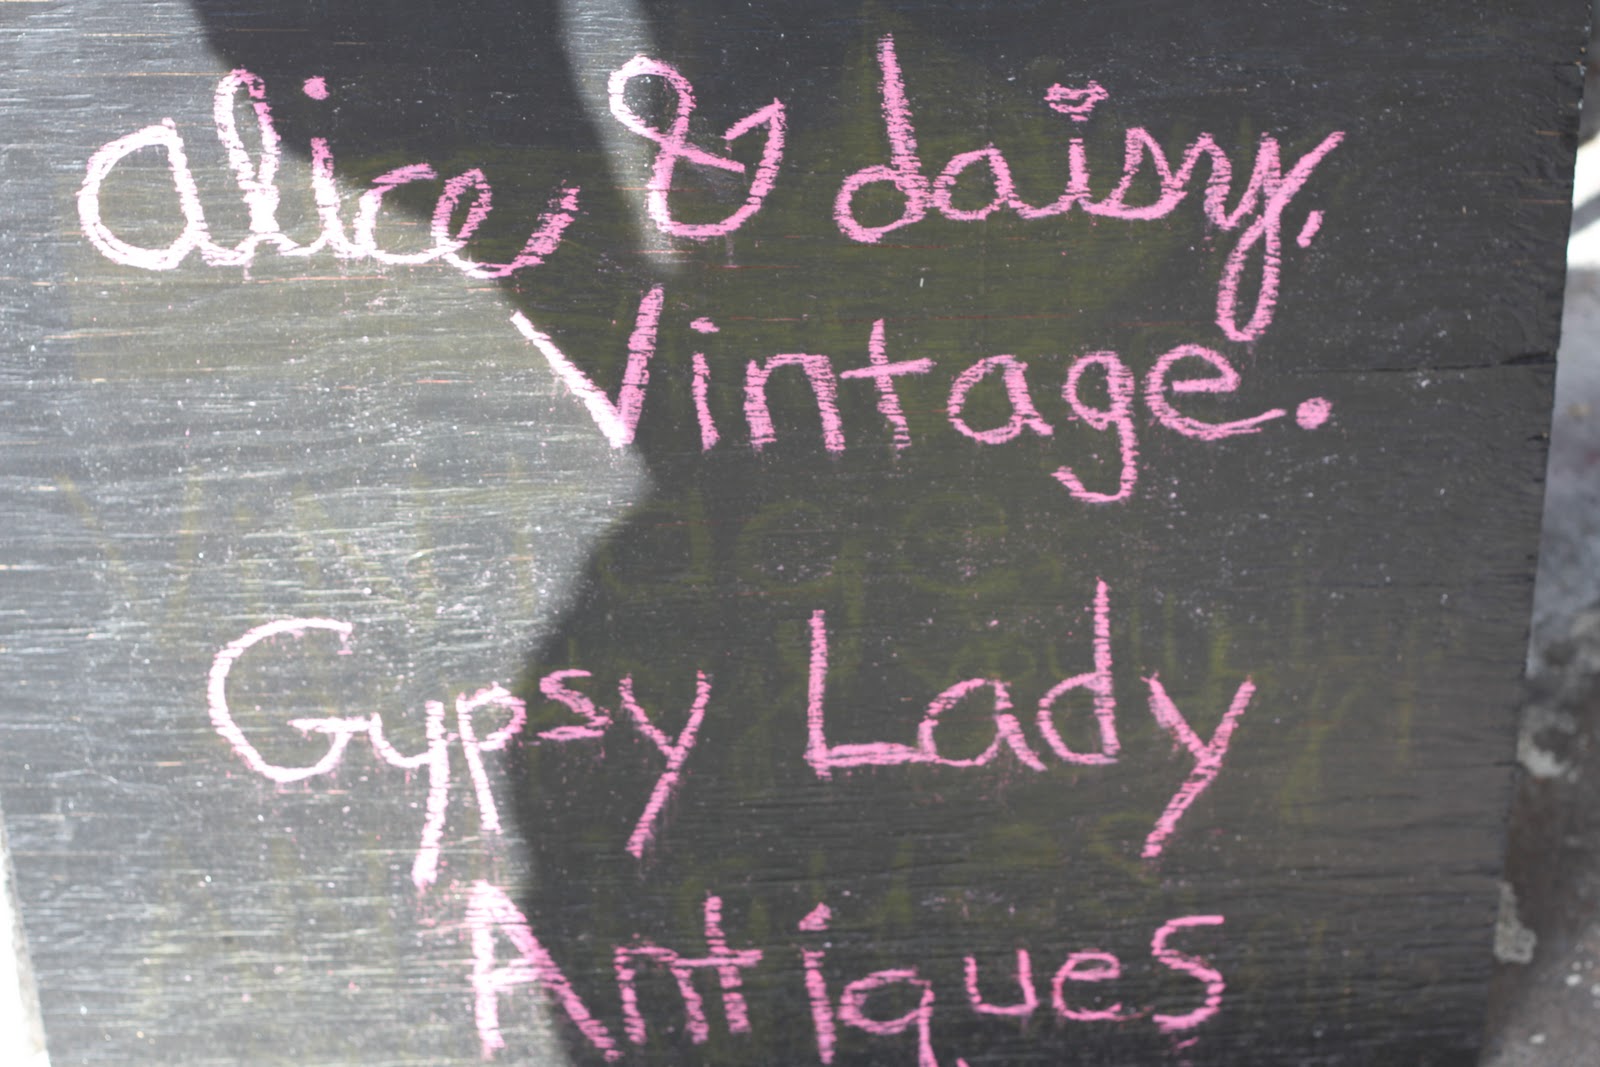 alice & daisy,
Vintage.
Gypsy Lady
Antiques